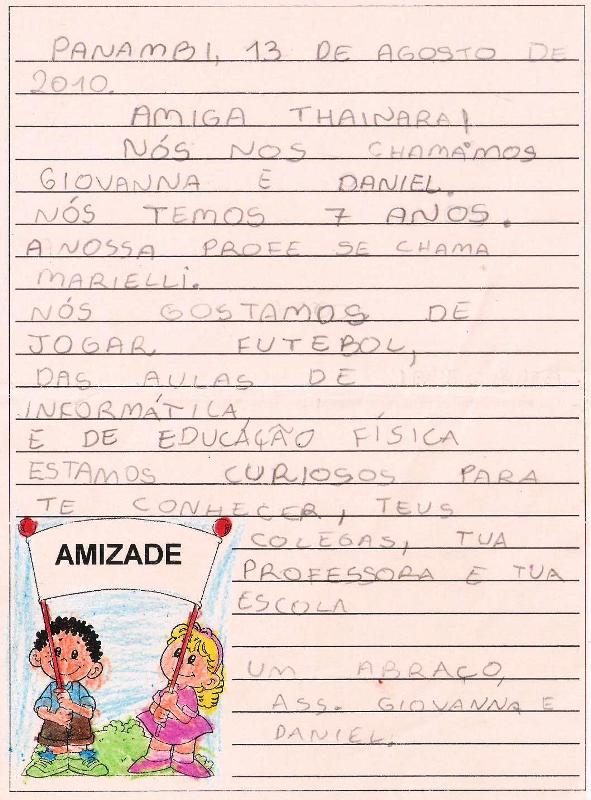 PANAMBI, 13 DE AGOSTO DE
2010.
AMIGA THAINARA!
NÓS NOS CHAMAMOS
GIOVANNA E DANIEL.
NÓS TEMOS 7 ANOS.
A NOSSA PROFE SE CHAMA
MARIELLI.
NÓS GOSTAMOS DE
JOGAR FUTEBOL,
DAS AULAS DE
INFORMÁTICA,
E DE EDUCAÇÃO FÍSICA
ESTAMOS CURIOSOS PARA
TE CONHECER, TEUS
COLEGAS, TUA
PROFESSORA E TUA
ESCOLA
UM ABRAÇO,
ASS. GIOVANNA E
DANIEL.
AMIZADE